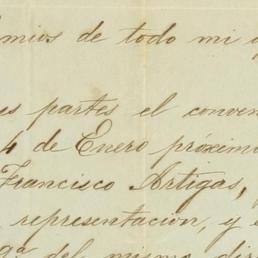 mios de todo mi
es partes el conven
4 de Enero próximo
Francisco Artigas,
representación, y e
gª del mismo dir